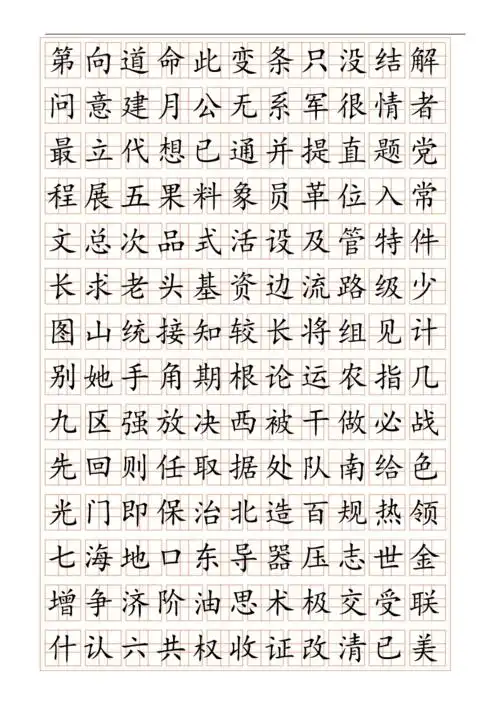 第向道命此变条只没结解
问意建月公无系军很情者
最立代想已通并提直题党
程展五果料象员革位入常
文总次品式活设及管特件
长求老头基资边流路级少
图山统接知较长将组见计
别她手角期根论运农指几
九区强放决西被干做必战
先回则任取据处队南给色
光门即保治北造百规热领
七海地口东导器压志世金
增争济阶油思术极交受联
什认六共权收证改清已美